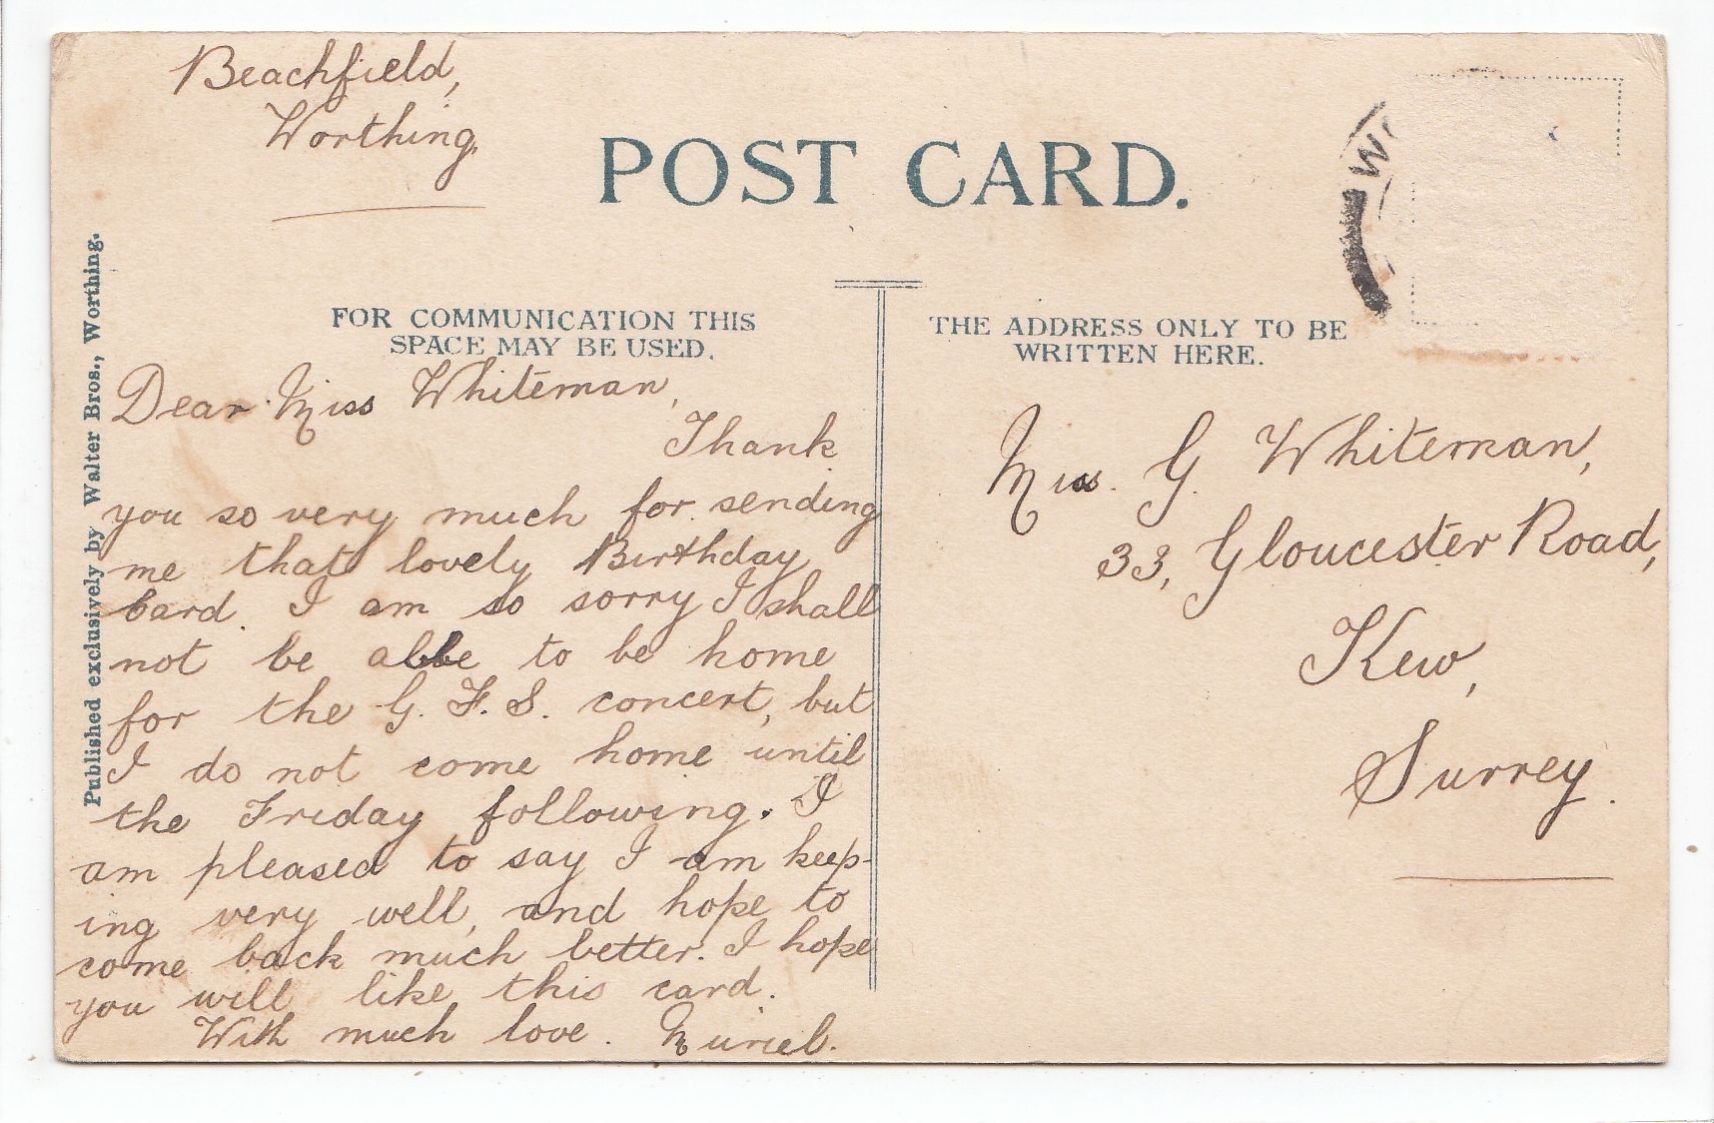 Beachfield,
Worthing.
POST CARD.
Published exclusively by Walter Bros., Worthing.
FOR COMMUNICATION THIS
SPACE MAY BE USED.
Dear Miss Whiteman,
Thank
you so very much for sending
me that lovely Birthday
Card. I am so sorry I shall
not be able to be home
for the G. F. S. concert, but
I do not come home until
the Friday following. I
am pleased to say I am keep-
ing very well, and hope to
come back much better. I hope
you will like this card.
With much love. Muriel.
THE ADDRESS ONLY TO BE
WRITTEN HERE.
Miss. G. Whiteman,
33, Gloucester Road,
Kew,
Surrey.